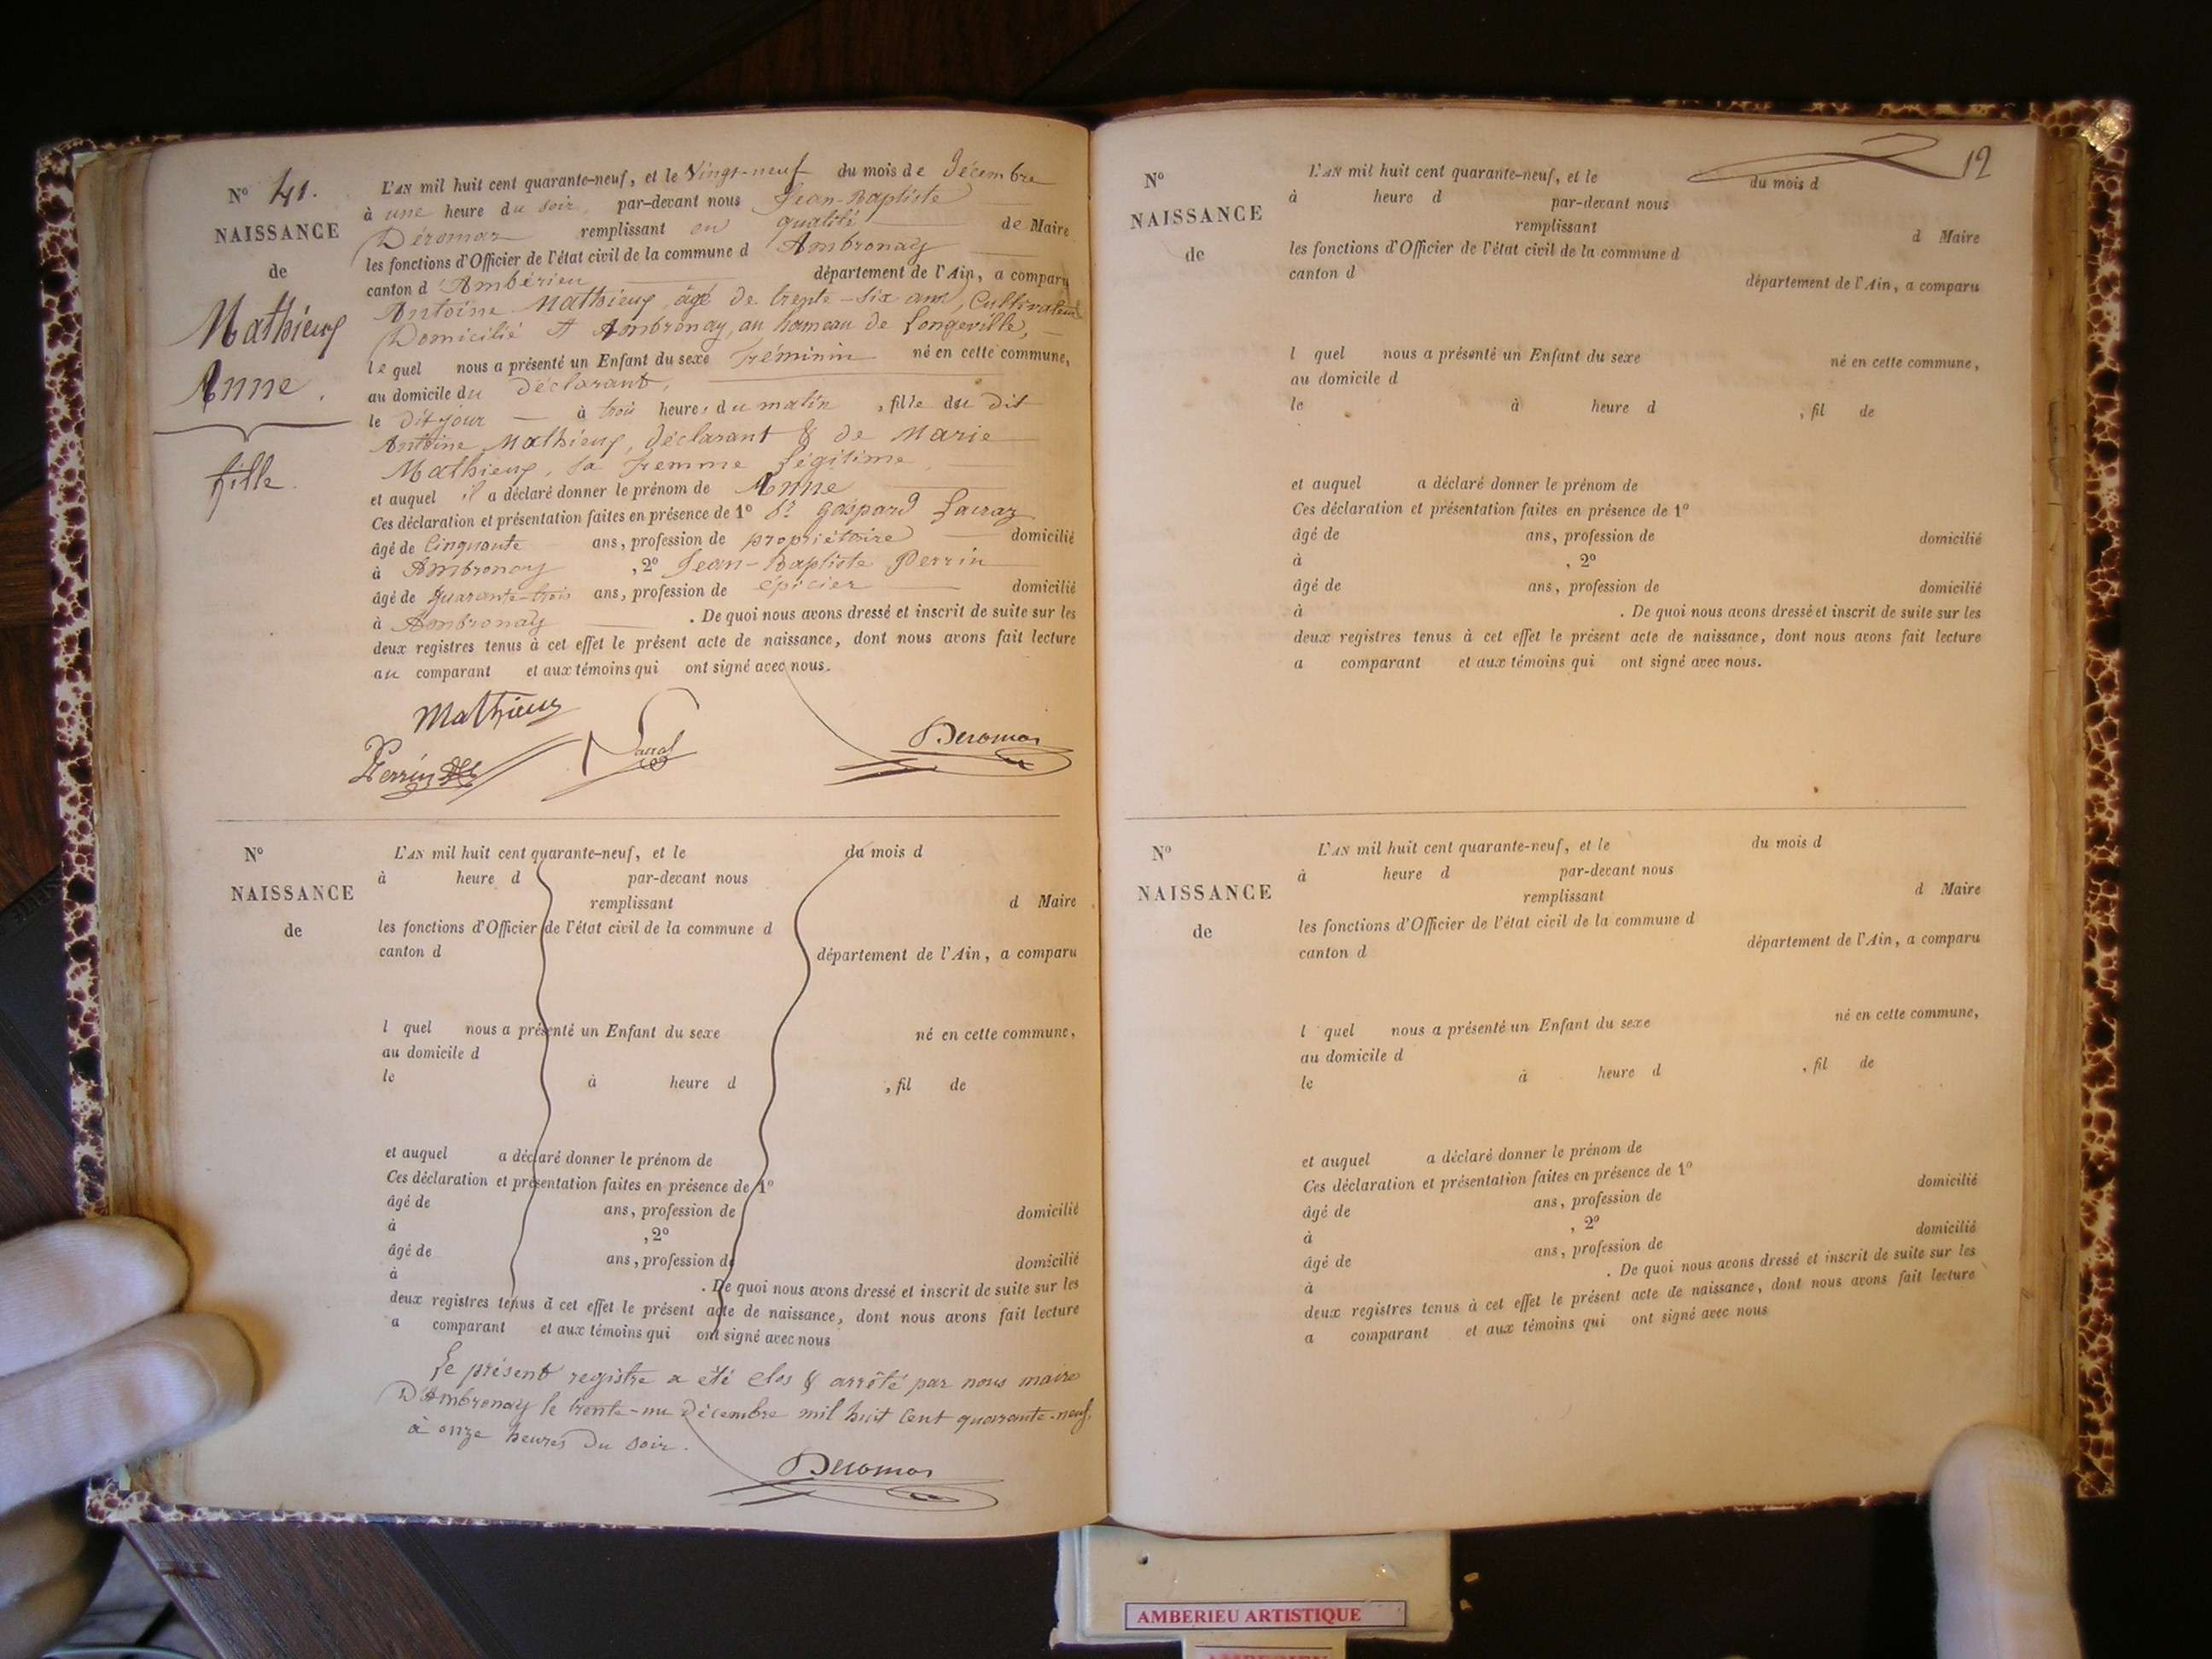 N° 41.
NAISSANCE
de
Mathieux
Anne.
fille.
L'AN mil huit cent quarante-neuf, et le Vingt-neuf du mois de Décembre
à une heure du soir, par-devant nous Jean-Baptiste
Déromas remplissant en qualité de Maire
les fonctions d'Officier de l'état civil de la commune d Ambronay
canton d Ambérieu département de l'Ain, a comparu
Antoine Mathieux, âgé de trente-six ans, Cultivateur
Domicilié à Ambronay, au hameau de Longeville,
lequel nous a présenté un Enfant du sexe Féminin né en cette commune,
au domicile du Déclarant,
le dit jour à trois heures du matin, fille du dit
Antoine Mathieux, déclarant & de Marie
Mathieux, sa Femme légitime
et auquel il a déclaré donner le prénom de Anne
Ces déclaration et présentation faites en présence de 1° Sr Gaspard
âgé de Cinquante ans, profession de propriétaire domicilié
à Ambronay, 2° Jean-Baptiste Perrin
âgé de Quarante-trois ans, profession de épicier domicilié
à Ambronay. De quoi nous avons dressé et inscrit de suite sur les
deux registres tenus à cet effet le présent acte de naissance, dont nous avons fait lecture
au comparant et aux témoins qui ont signé avec nous.
Mathieux
Perrin
Deromas
N°
NAISSANCE
de
L'AN mil huit cent quarante-neuf, et le du mois d
à heure d par-devant nous
remplissant d Maire
les fonctions d'Officier de l'état civil de la commune d
canton d département de l'Ain, a comparu
l quel nous a présenté un Enfant du sexe né en cette commune,
au domicile d
le à heure d , fil de
et auquel a déclaré donner le prénom de
Ces déclaration et présentation faites en présence de 1°
âgé de ans, profession de domicilié
à , 2°
âgé de ans, profession de domicilié
à . De quoi nous avons dressé et inscrit de suite sur les
deux registres tenus à cet effet le présent acte de naissance, dont nous avons fait lecture
a comparant et aux témoins qui ont signé avec nous
Le présent registre a été clos & arrêté par nous maire
D'Ambronay le trente-un Décembre mil huit cent quarante-neuf,
à onze heures du soir.
Deromas
12
N°
NAISSANCE
de
L'AN mil huit cent quarante-neuf, et le du mois d
à heure d par-devant nous
remplissant d Maire
les fonctions d'Officier de l'état civil de la commune d
canton d département de l'Ain, a comparu
l quel nous a présenté un Enfant du sexe né en cette commune,
au domicile d
le à heure d , fil de
et auquel a déclaré donner le prénom de
Ces déclaration et présentation faites en présence de 1°
âgé de ans, profession de domicilié
à , 2°
âgé de ans, profession de domicilié
à . De quoi nous avons dressé et inscrit de suite sur les
deux registres tenus à cet effet le présent acte de naissance, dont nous avons fait lecture
a comparant et aux témoins qui ont signé avec nous.
N°
NAISSANCE
de
L'AN mil huit cent quarante-neuf, et le du mois d
à heure d par-devant nous
remplissant d Maire
les fonctions d'Officier de l'état civil de la commune d
canton d département de l'Ain, a comparu
l quel nous a présenté un Enfant du sexe né en cette commune,
au domicile d
le à heure d , fil de
et auquel a déclaré donner le prénom de
Ces déclaration et présentation faites en présence de 1°
âgé de ans, profession de domicilié
à , 2°
âgé de ans, profession de domicilié
à . De quoi nous avons dressé et inscrit de suite sur les
deux registres tenus à cet effet le présent acte de naissance, dont nous avons fait lecture
a comparant et aux témoins qui ont signé avec nous
AMBERIEU ARTISTIQUE